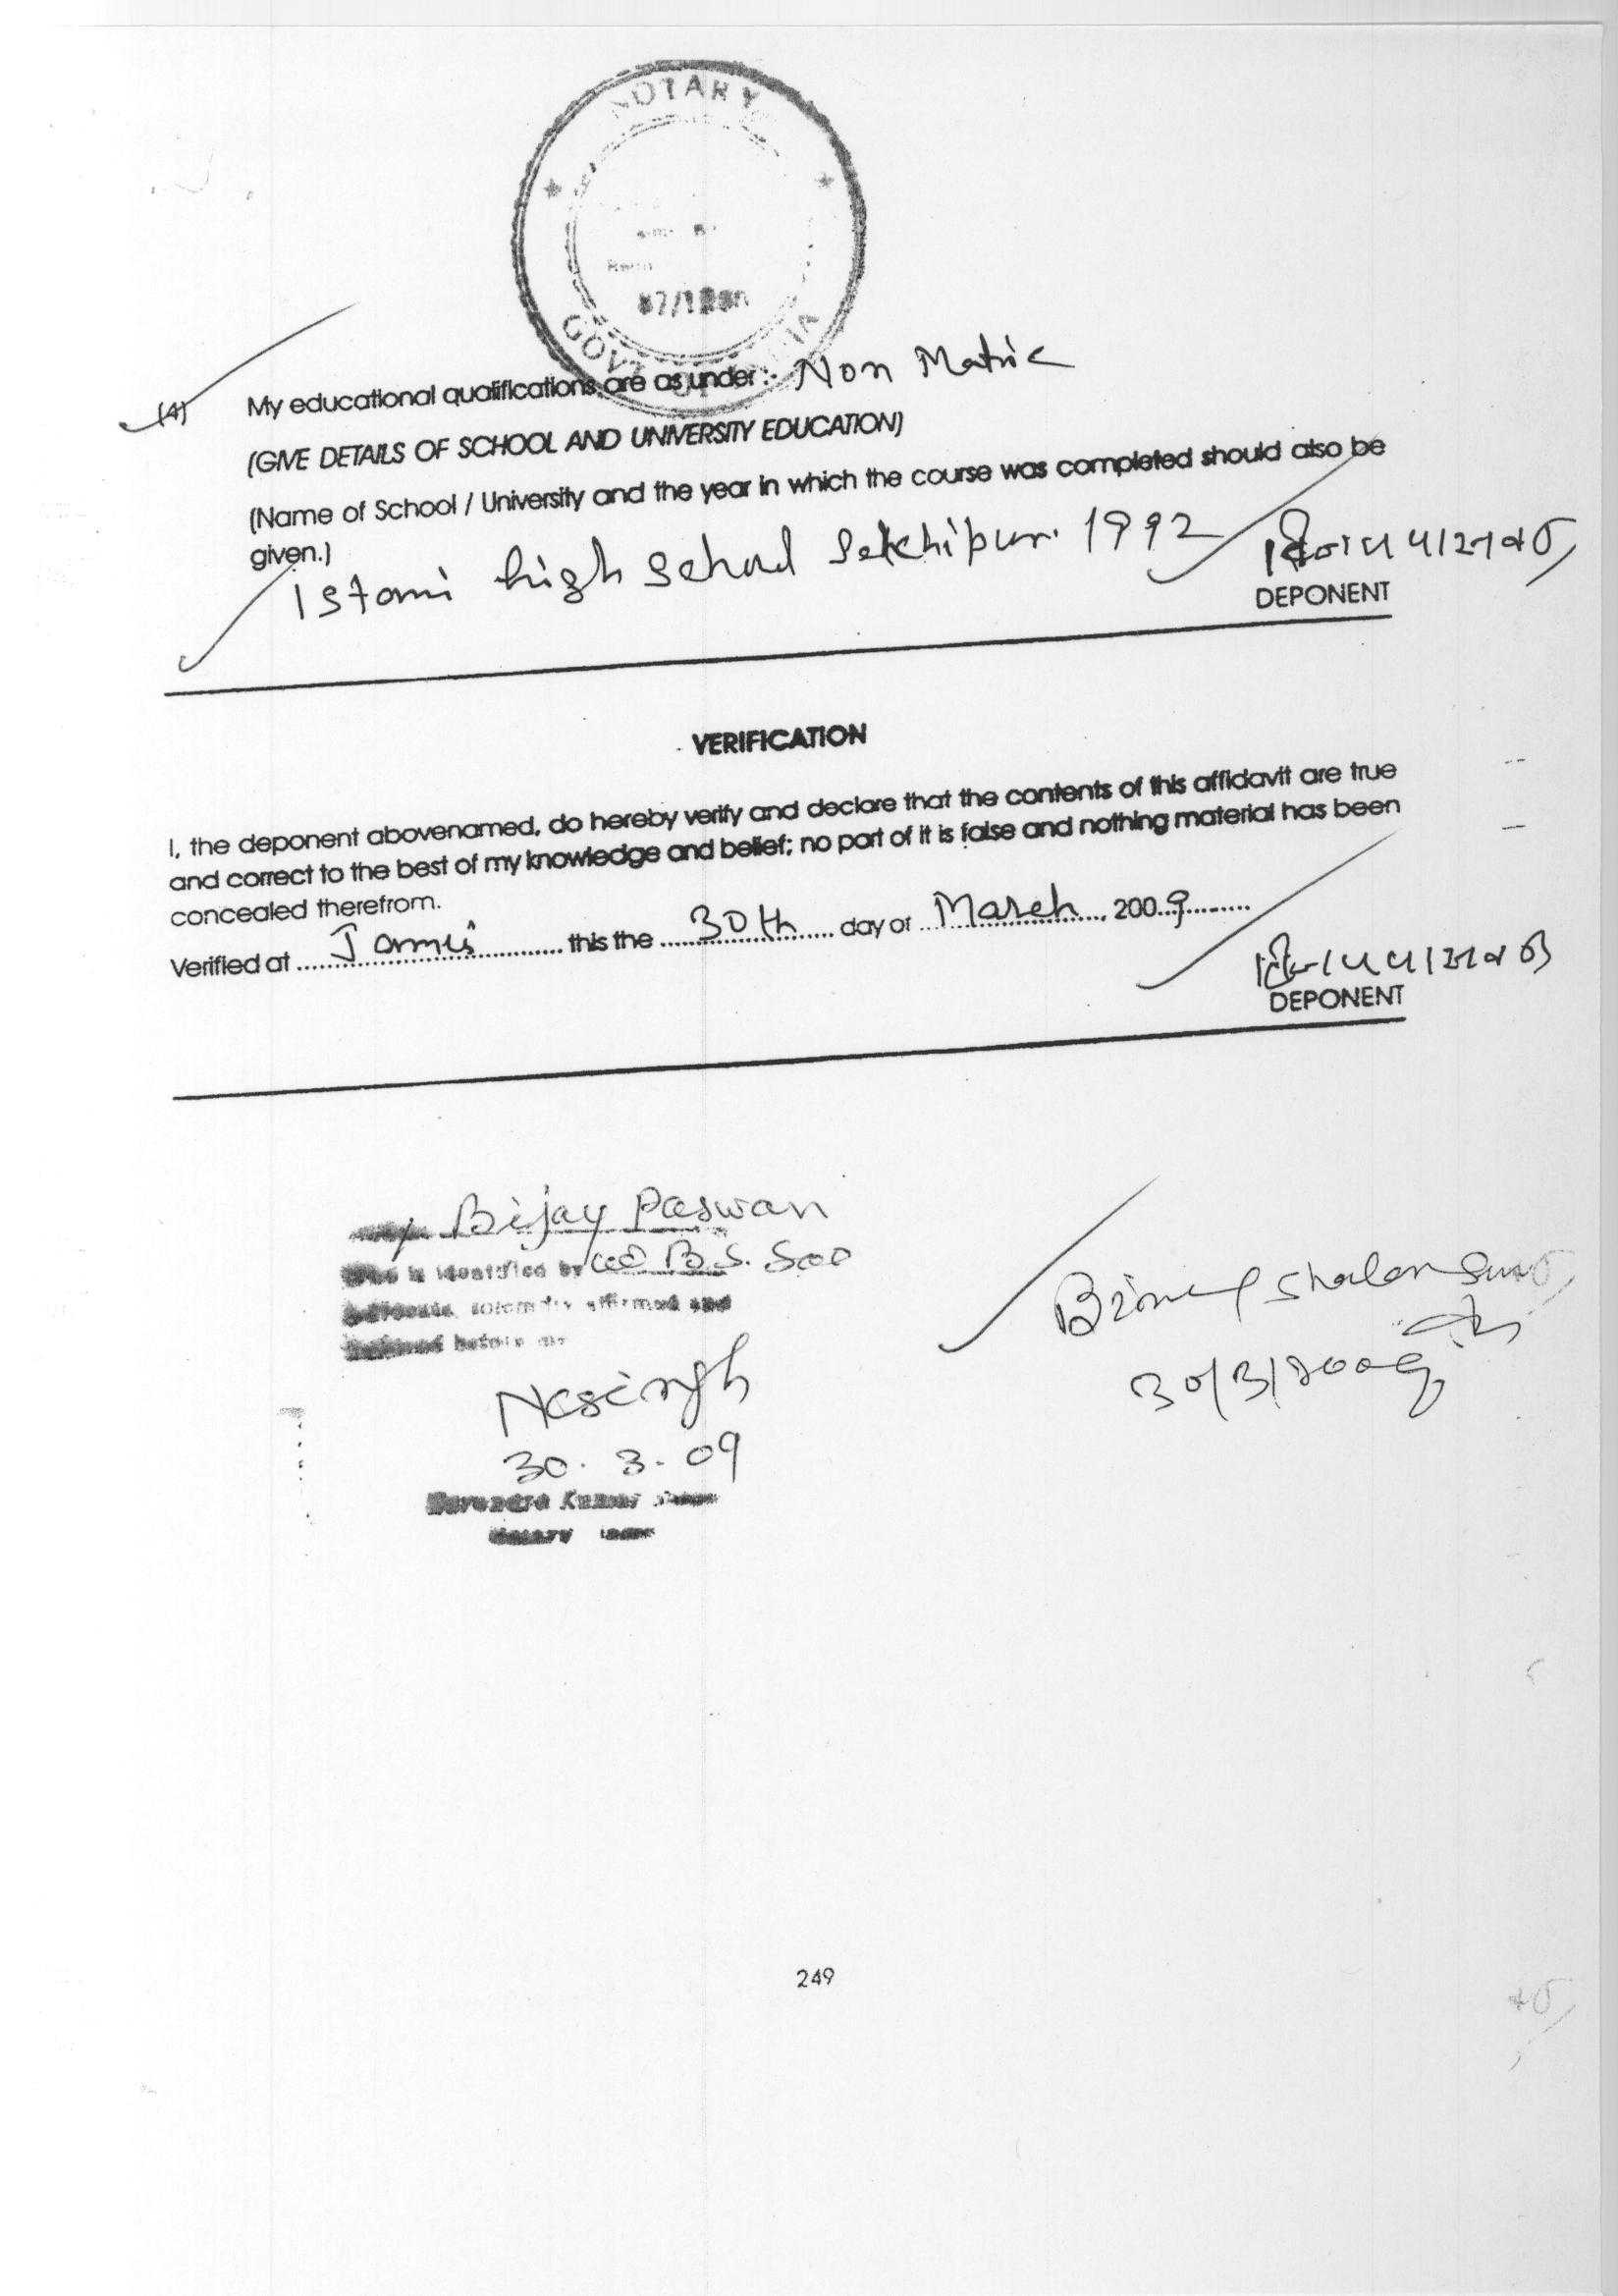 NOTARY
GOVT OF INDIA
(4) My educational qualifications are as under :- Non Matric
(GIVE DETAILS OF SCHOOL AND UNIVERSITY EDUCATION)
(Name of School / University and the year in which the course was completed should also be
given.)
high school 1992
DEPONENT
VERIFICATION
I, the deponent abovenamed, do hereby verify and declare that the contents of this affidavit are true
and correct to the best of my knowledge and belief; no part of it is false and nothing material has been
concealed therefrom.
Verified at Jamui this the 30th day of March, 2009
DEPONENT
Bijay Paswan
Who is identified by B.S.
Advocate solemnly affirmed and
before me
30.3.09
30/3/2009
Kumar
Notary
249